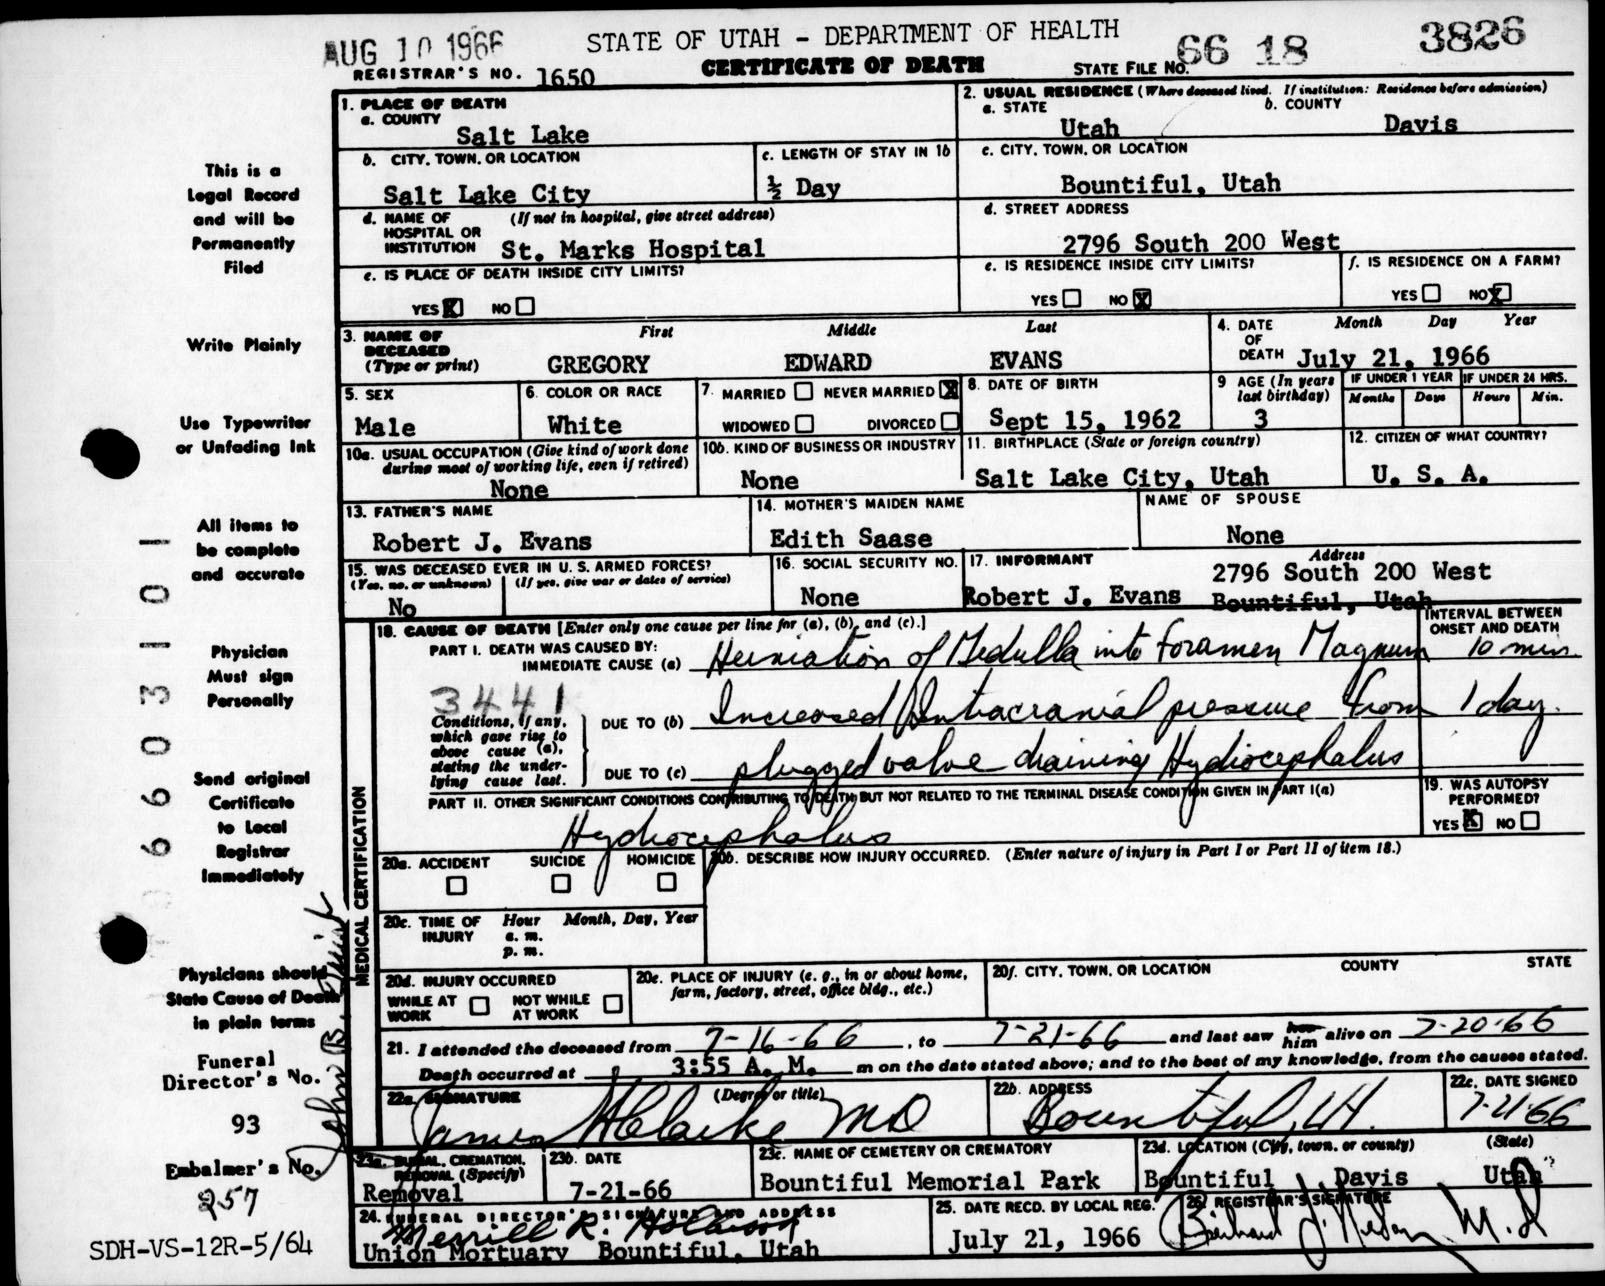 AUG 10 1966
STATE OF UTAH - DEPARTMENT OF HEALTH
66 18 3826
REGISTRAR'S NO. 1650
CERTIFICATE OF DEATH
STATE FILE NO.
1. PLACE OF DEATH
a. COUNTY
Salt Lake
2. USUAL RESIDENCE (Where deceased lived. If institution: Residence before admission)
a. STATE
Utah
b. COUNTY
Davis
b. CITY, TOWN, OR LOCATION
Salt Lake City
c. LENGTH OF STAY IN 1b
½ Day
c. CITY, TOWN, OR LOCATION
Bountiful, Utah
d. NAME OF HOSPITAL OR INSTITUTION (If not in hospital, give street address)
St. Marks Hospital
d. STREET ADDRESS
2796 South 200 West
e. IS PLACE OF DEATH INSIDE CITY LIMITS?
YES X NO
e. IS RESIDENCE INSIDE CITY LIMITS?
YES NO X
f. IS RESIDENCE ON A FARM?
YES NO X
3. NAME OF DECEASED (Type or print)
First Middle Last
GREGORY EDWARD EVANS
4. DATE OF DEATH
Month Day Year
July 21, 1966
5. SEX
Male
6. COLOR OR RACE
White
7. MARRIED NEVER MARRIED X
WIDOWED DIVORCED
8. DATE OF BIRTH
Sept 15, 1962
9 AGE (In years last birthday)
3
IF UNDER 1 YEAR
Months Days
IF UNDER 24 HRS.
Hours Min.
10a. USUAL OCCUPATION (Give kind of work done during most of working life, even if retired)
None
10b. KIND OF BUSINESS OR INDUSTRY
None
11. BIRTHPLACE (State or foreign country)
Salt Lake City, Utah
12. CITIZEN OF WHAT COUNTRY?
U. S. A.
13. FATHER'S NAME
Robert J. Evans
14. MOTHER'S MAIDEN NAME
Edith Saase
NAME OF SPOUSE
None
15. WAS DECEASED EVER IN U. S. ARMED FORCES?
(Yes, no, or unknown) (If yes, give war or dates of service)
No
16. SOCIAL SECURITY NO.
None
17. INFORMANT
Robert J. Evans
Address
2796 South 200 West
Bountiful, Utah
18. CAUSE OF DEATH [Enter only one cause per line for (a), (b), and (c).]
INTERVAL BETWEEN ONSET AND DEATH
PART I. DEATH WAS CAUSED BY:
IMMEDIATE CAUSE (a) Herniation of Medulla into Foramen Magnum 10 min
3441
Conditions, if any, which gave rise to above cause (a), stating the underlying cause last.
DUE TO (b) Increased Intracranial pressure from 1 day.
DUE TO (c) plugged valve draining Hydrocephalus
PART II. OTHER SIGNIFICANT CONDITIONS CONTRIBUTING TO DEATH BUT NOT RELATED TO THE TERMINAL DISEASE CONDITION GIVEN IN PART I(a)
Hydrocephalus
19. WAS AUTOPSY PERFORMED?
YES X NO
MEDICAL CERTIFICATION
20a. ACCIDENT SUICIDE HOMICIDE
20b. DESCRIBE HOW INJURY OCCURRED. (Enter nature of injury in Part I or Part II of item 18.)
20c. TIME OF INJURY
Hour Month, Day, Year
a. m.
p. m.
20d. INJURY OCCURRED
WHILE AT WORK NOT WHILE AT WORK
20e. PLACE OF INJURY (e. g., in or about home, farm, factory, street, office bldg., etc.)
20f. CITY, TOWN, OR LOCATION COUNTY STATE
21. I attended the deceased from 7-16-66, to 7-21-66 and last saw her him alive on 7-20-66
Death occurred at 3:55 A. M. m on the date stated above; and to the best of my knowledge, from the causes stated.
22a. SIGNATURE (Degree or title)
James H Clarke MD
22b. ADDRESS
Bountiful, Ut.
22c. DATE SIGNED
7-21-66
23a. BURIAL, CREMATION, REMOVAL (Specify)
Removal
23b. DATE
7-21-66
23c. NAME OF CEMETERY OR CREMATORY
Bountiful Memorial Park
23d. LOCATION (City, town, or county) (State)
Bountiful Davis Utah
24. FUNERAL DIRECTOR'S SIGNATURE AND ADDRESS
Merrill R.
Union Mortuary Bountiful, Utah
25. DATE RECD. BY LOCAL REG.
July 21, 1966
26. REGISTRAR'S SIGNATURE
M. D
This is a
Legal Record
and will be
Permanently
Filed
Write Plainly
Use Typewriter
or Unfading Ink
All items to
be complete
and accurate
Physician
Must sign
Personally
Send original
Certificate
to Local
Registrar
Immediately
Physicians should
State Cause of Death
in plain terms
Funeral
Director's No.
93
Embalmer's No.
257
John B.
SDH-VS-12R-5/64
6603101